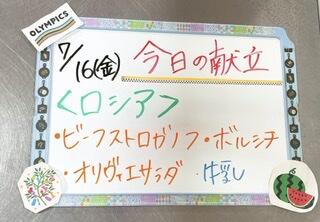 OLYMPICS
7/16(金) 今日の献立
<ロシア>
・ビーフストロガノフ・ボルシチ
・オリヴィエサラダ ・牛乳